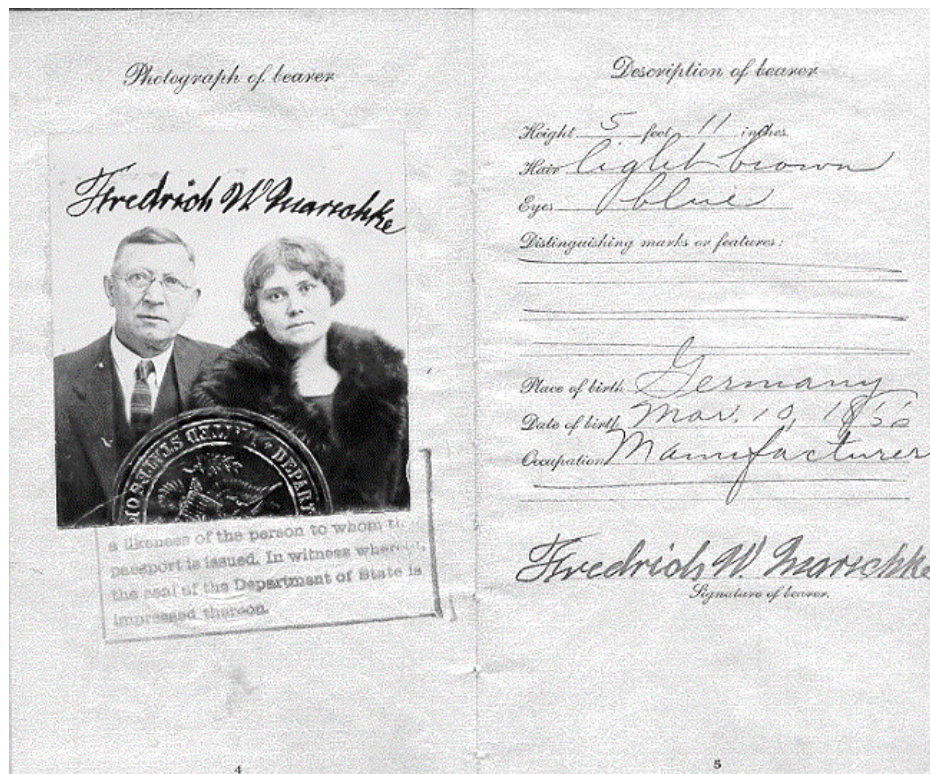 Photograph of bearer
Fredrich W. Marschke
UNITED STATES OF DEPART
a likeness of the person to whom
passport is issued. In witness
the seal of the Department of State is
impressed thereon.
4
Description of bearer
Height 5 feet 11 inches
Hair light brown
Eyes blue
Distinguishing marks or features:
Place of birth Germany
Date of birth Mar. 10,
Occupation Manufacturer
Fredrich W. Marschke
Signature of bearer.
5